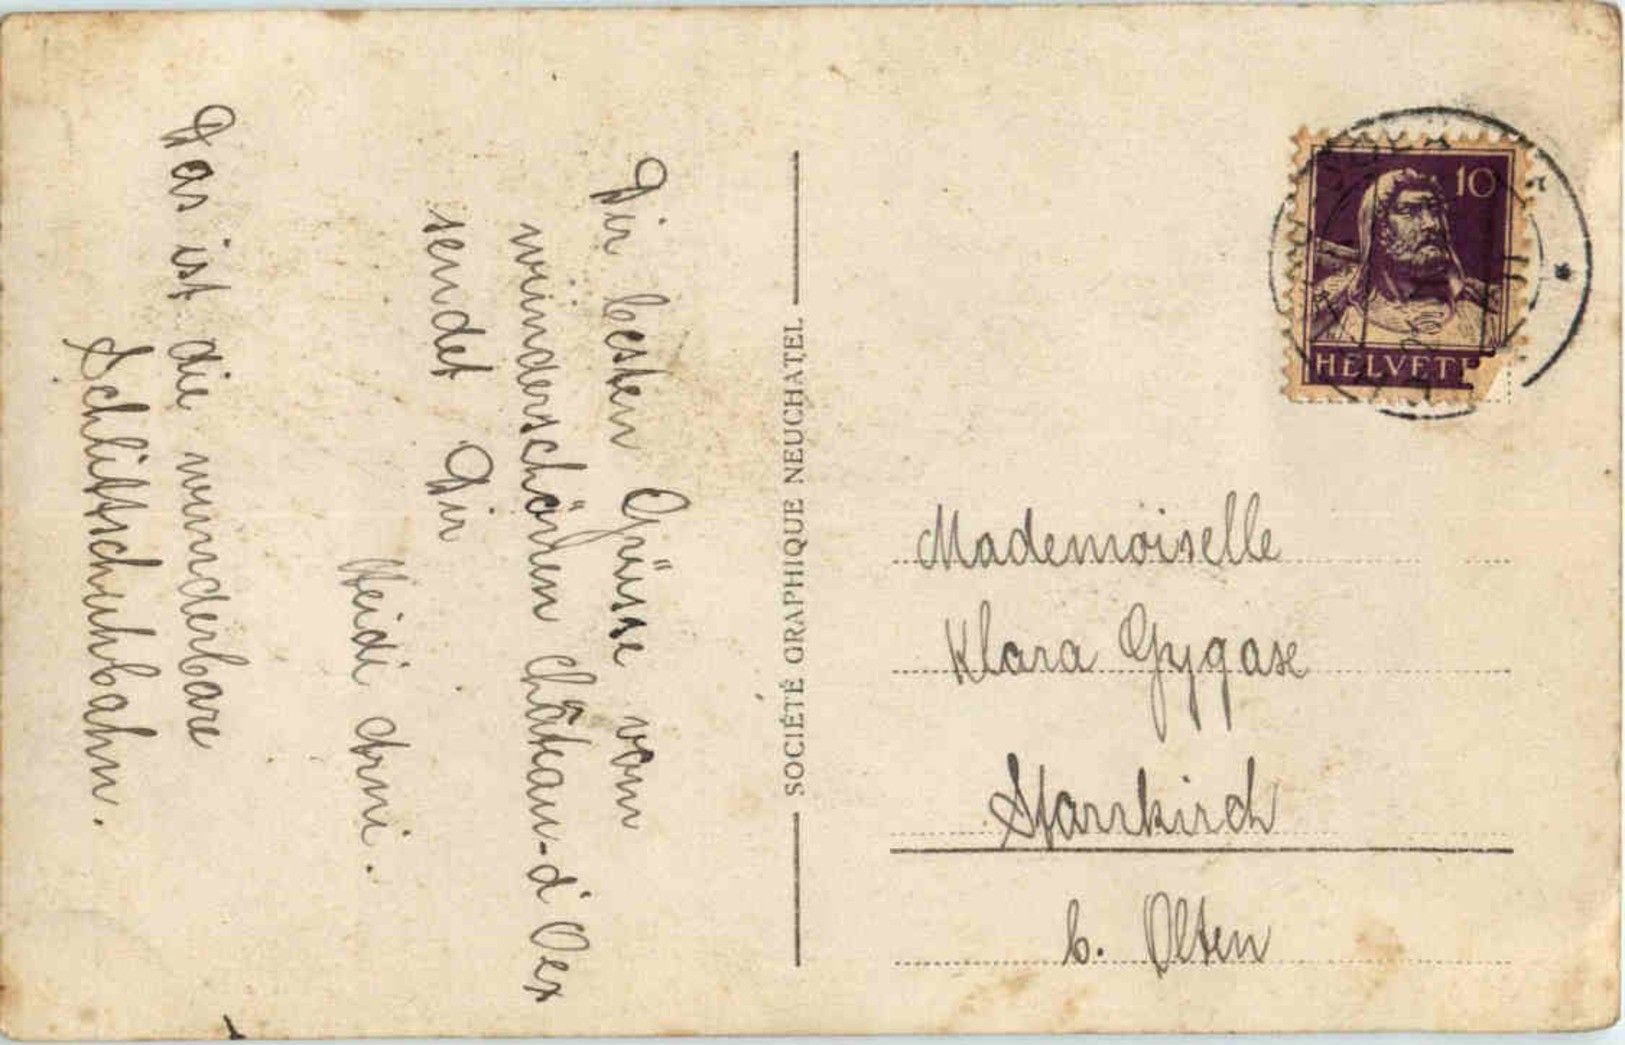 Dir besten Grüsse vom
wunderschönen Château-d'Oex
sendet Dir
Heidi Arni.
Das ist die wunderbare
Schlittschuhbahn.
SOCIÉTÉ GRAPHIQUE NEUCHATEL
10
HELVETI
Mademoiselle
Klara Gygase
Starrkirch
b. Olten